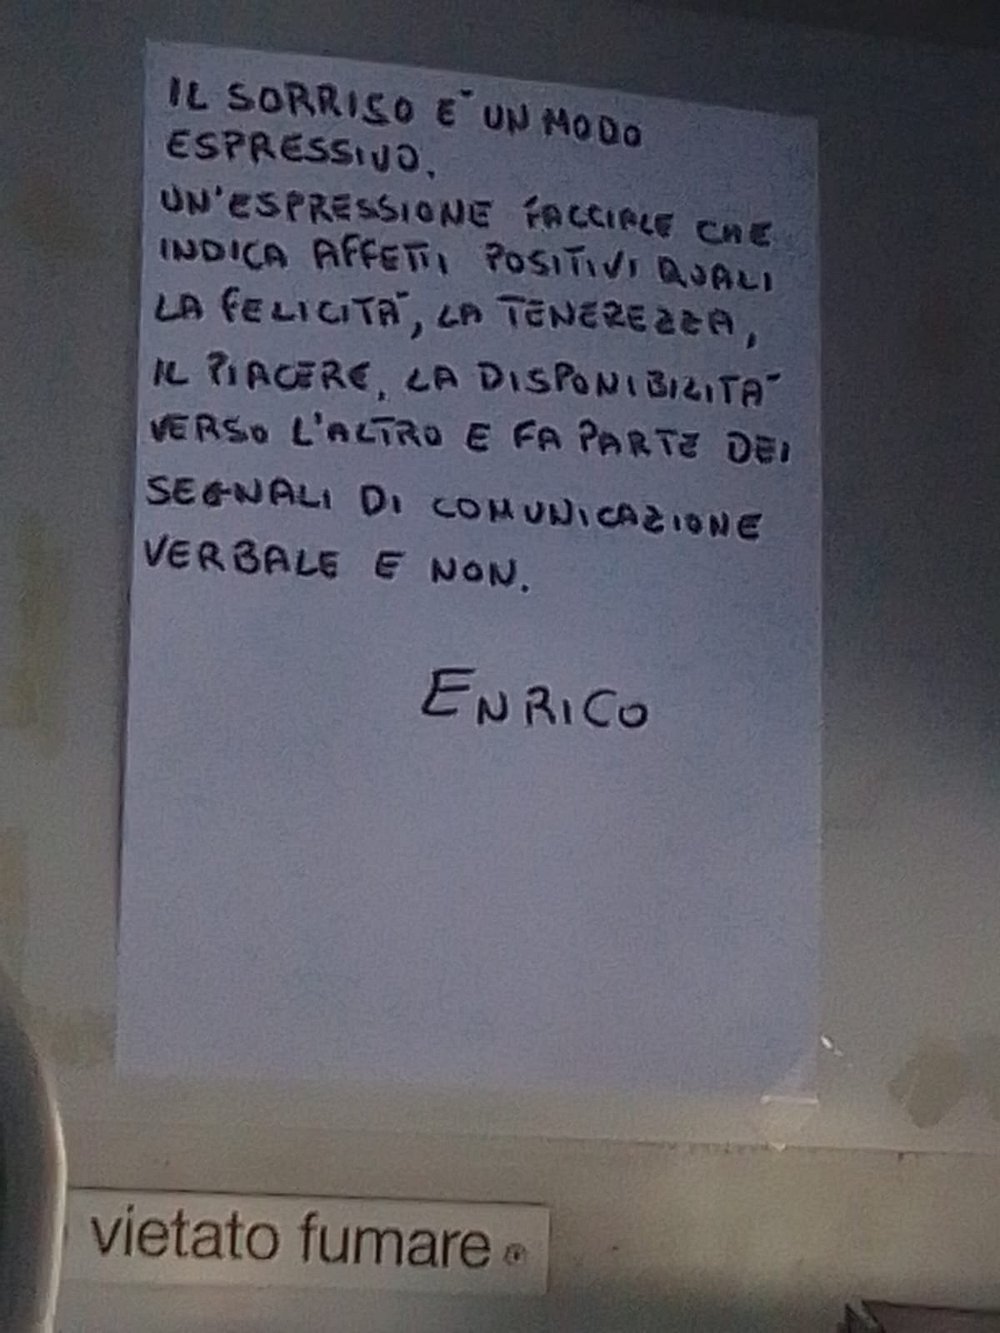 IL SORRISO E' UN MODO
ESPRESSIVO.
UN'ESPRESSIONE FACCIALE CHE
INDICA AFFETTI POSITIVI QUALI
LA FELICITA', LA TENEREZZA,
IL PIACERE, LA DISPONIBILITA'
VERSO L'ALTRO E FA PARTE DEI
SEGNALI DI COMUNICAZIONE
VERBALE E NON.
ENRICO
vietato fumare